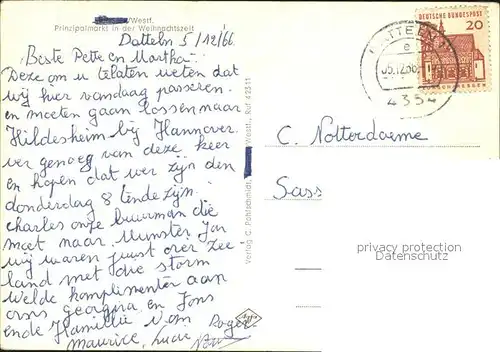 /Westf.
Prinzipalmarkt in der Weihnachtszeit
Datteln 5/12/66
Beste Pette en Martha
Deze om u telaten weten dat
wij hier vandaag passeren.
en moeten gaan lossen naar
Hildesheim bij Hannover.
ver genoeg van deze keer
en hopen dat wer zijn den
donderdag 8 tende zijn.
charles onze buurman die
moet naar Munster Jor
wij waren juust over zee
land met die storm
welde komplimenten aan
ons georgina en Jons
ende Familie v
Roger
Maurice, Lucie
Verlag C. Pohlschmidt, /Westf., Ruf 42311
DEUTSCHE BUNDESPOST
20
DATTELN
e
-5.12.66
4354
C. Notterdaeme
Sass
privacy protection
Datenschutz